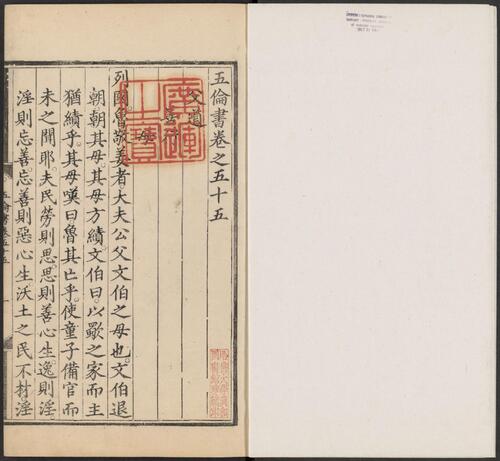 五倫書卷之五十五
父道
善行
廣運之寶
列國魯敬姜者大夫公父文伯之母也。文伯退
朝朝其母。其母方績。文伯曰。以歜之家而主
猶績乎。其母嘆曰魯其亡乎。使童子備官而
未之聞耶。夫民勞則思。思則善心生。逸則淫。
淫則忘善。忘善則惡心生。沃土之民不材。淫
五倫書卷五十五